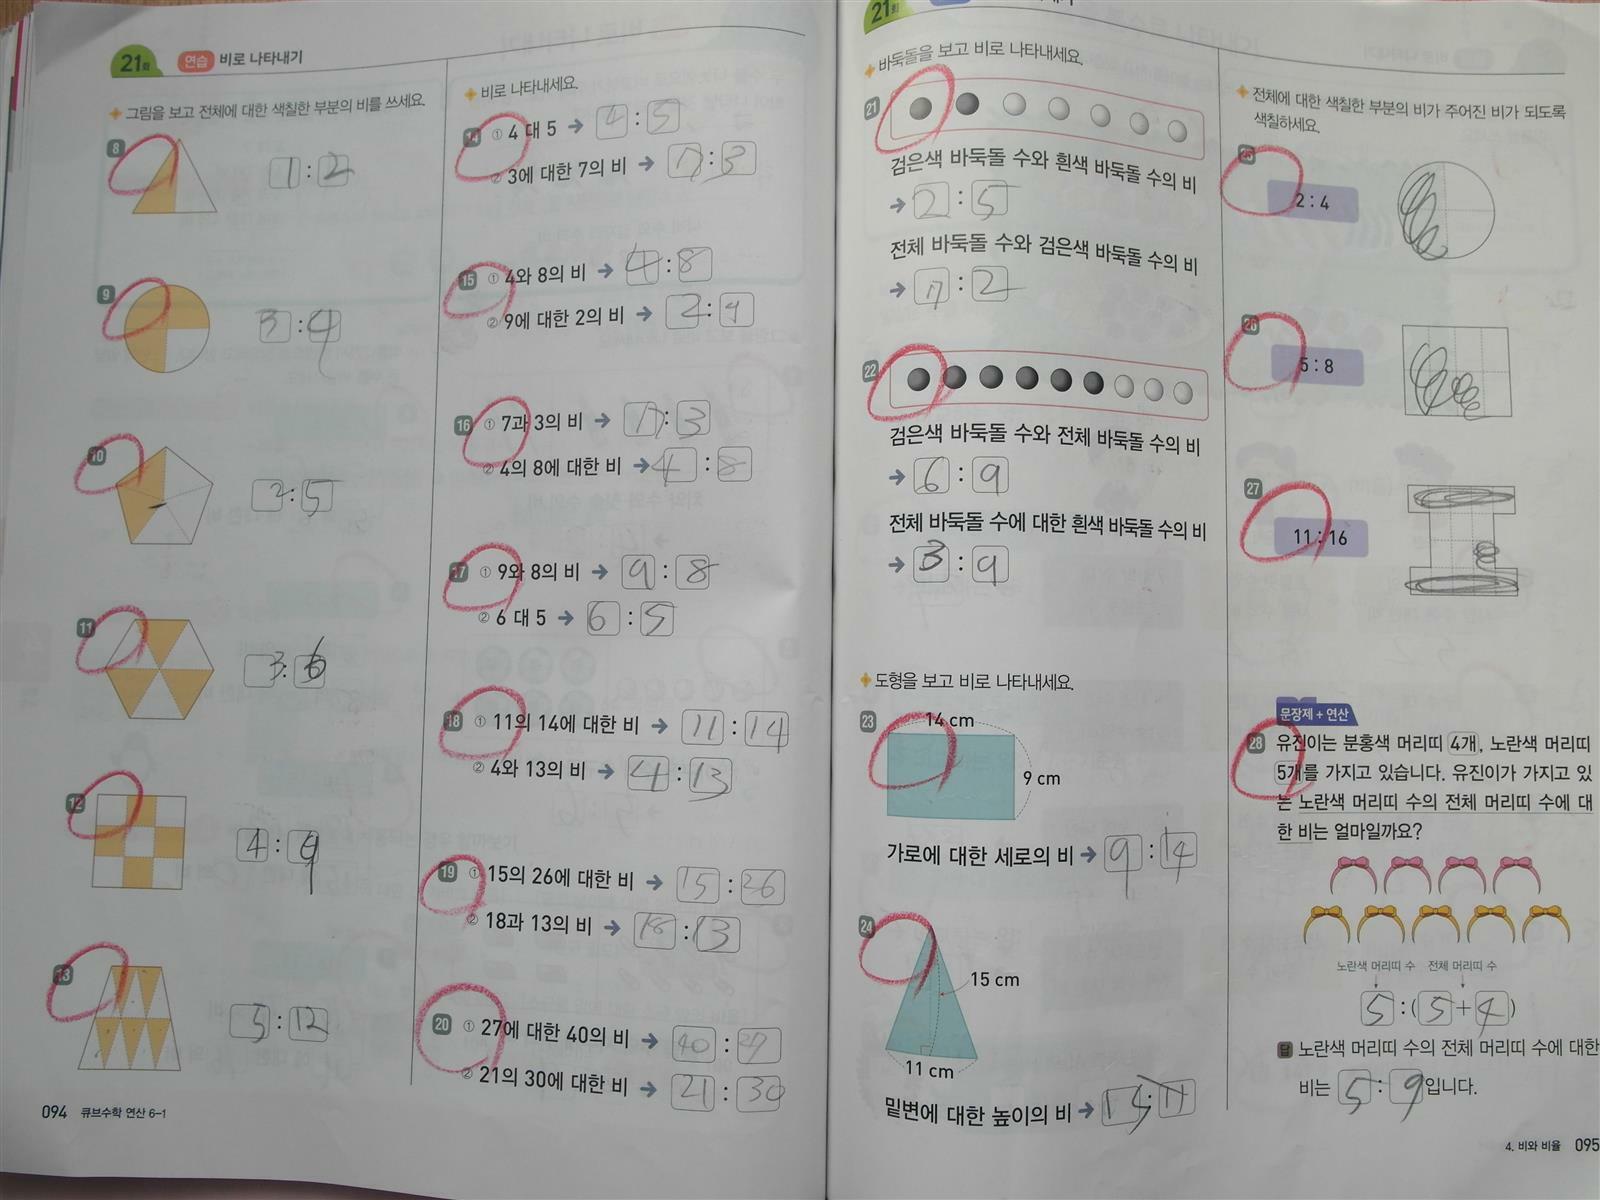 21회 연습 비로 나타내기
그림을 보고 전체에 대한 색칠한 부분의 비를 쓰세요.
8
1 : 2
9
3 : 4
10
2 : 5
11
3 : 6
12
4 : 9
13
5 : 12
비로 나타내세요.
14 ① 4 대 5 → 4 : 5
② 3에 대한 7의 비 → 7 : 3
15 ① 4와 8의 비 → 4 : 8
② 9에 대한 2의 비 → 2 : 9
16 ① 7과 3의 비 → 7 : 3
② 4의 8에 대한 비 → 4 : 8
17 ① 9와 8의 비 → 9 : 8
② 6 대 5 → 6 : 5
18 ① 11의 14에 대한 비 → 11 : 14
② 4와 13의 비 → 4 : 13
19 ① 15의 26에 대한 비 → 15 : 26
② 18과 13의 비 → 18 : 13
20 ① 27에 대한 40의 비 → 40 : 27
② 21의 30에 대한 비 → 21 : 30
094 큐브수학 연산 6-1
21회
바둑돌을 보고 비로 나타내세요.
21
검은색 바둑돌 수와 흰색 바둑돌 수의 비
→ 2 : 5
전체 바둑돌 수와 검은색 바둑돌 수의 비
→ 7 : 2
22
검은색 바둑돌 수와 전체 바둑돌 수의 비
→ 6 : 9
전체 바둑돌 수에 대한 흰색 바둑돌 수의 비
→ 3 : 9
도형을 보고 비로 나타내세요.
23
14 cm
9 cm
가로에 대한 세로의 비 → 9 : 14
24
15 cm
11 cm
밑변에 대한 높이의 비 → 15 : 11
전체에 대한 색칠한 부분의 비가 주어진 비가 되도록
색칠하세요.
25
2 : 4
26
5 : 8
27
11 : 16
문장제 + 연산
28 유진이는 분홍색 머리띠 4개, 노란색 머리띠
5개를 가지고 있습니다. 유진이가 가지고 있
는 노란색 머리띠 수의 전체 머리띠 수에 대
한 비는 얼마일까요?
노란색 머리띠 수 전체 머리띠 수
5 : (5 + 4)
답 노란색 머리띠 수의 전체 머리띠 수에 대한
비는 5 : 9 입니다.
4. 비와 비율 095